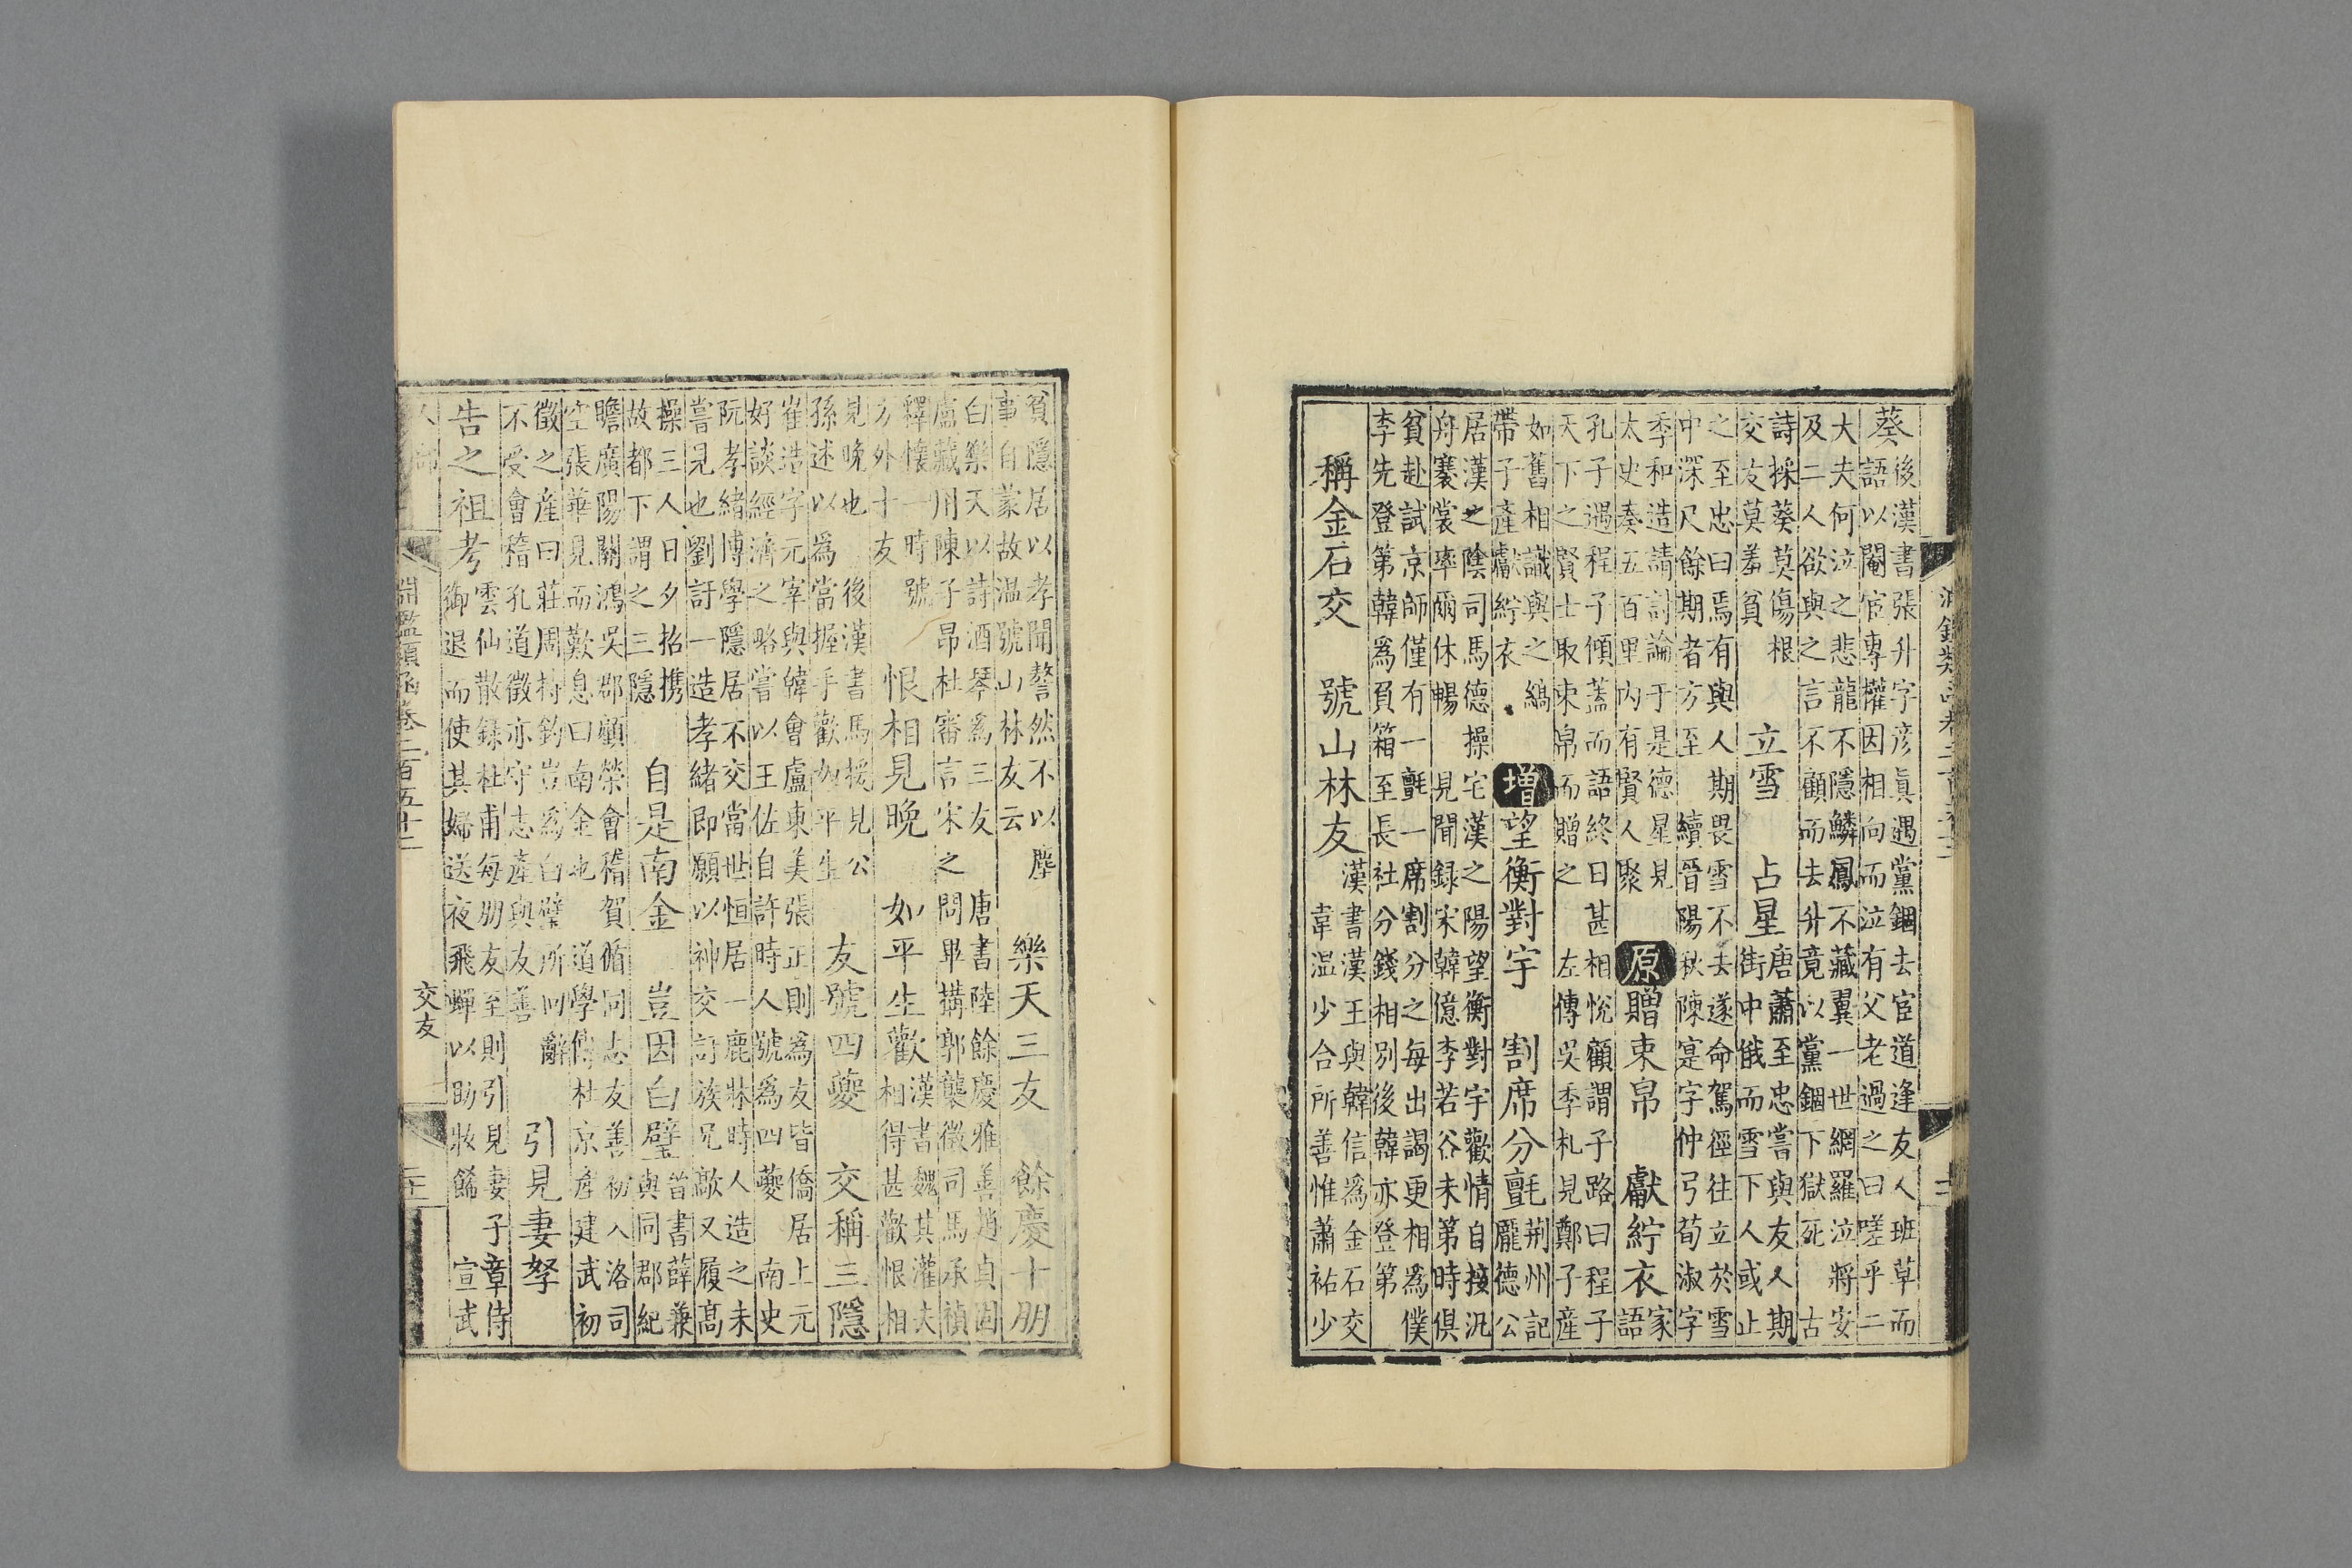 葵
後漢書張升字彦眞遇黨錮去官道逢友人班草而
語以閹宦專權因相向而泣有父老過之曰嗟乎二
大夫何泣之悲龍不隱鱗鳳不藏翼一世網羅泣將安
及二人欲與之言不顧而去升竟以黨錮下獄死　古
詩採葵莫傷根
交友莫羞貧
立雪　占星
唐蕭至忠嘗與友人期
街中俄而雪下人或止
之至忠曰焉有與人期畏雪不去遂命駕徑往立於雪
中深尺餘期者方至　續晉陽秋陳寔字仲弓荀淑字
季和造請討論于是德星見
太史奏五百里內有賢人聚
原贈束帛　獻紵衣
家
語
孔子遇程子傾蓋而語終日甚相悅顧謂子路曰程子
天下之賢士取束帛而贈之　左傳吳季札見鄭子產
如舊相識與之縞
帶子產獻紵衣
增望衡對宇　割席分氈
荆州記
龐德公
居漢之陰司馬德操宅漢之陽望衡對宇歡情自接汎
舟褰裳率爾休暢　見聞録宋韓億李若谷未第時俱
貧赴試京師僅有一氈一席割分之每出謁更相爲僕
李先登第韓爲負箱至長社分錢相別後韓亦登第
稱金石交　號山林友
漢書漢王與韓信爲金石交
韋温少合所善惟蕭祐少
貧隱居以孝聞謷然不以塵
事自蒙故温號山林友云
樂天三友　餘慶十朋
白樂天以詩酒琴爲三友　唐書陸餘慶雅善趙貞固
盧藏用陳子昂杜審言宋之問畢搆郭襲微司馬承禎
釋懷一時號
方外十友
恨相見晚　如平生歡
漢書魏其灌夫
相得甚歡恨相
見晚也　後漢書馬援見公
孫述以爲當握手歡如平生
友號四夔　交稱三隱
崔造字元宰與韓會盧東美張正則爲友皆僑居上元
好談經濟之略嘗以王佐自許時人號爲四夔　南史
阮孝緒博學隱居不交當世恒居一鹿牀時人造之未
嘗見也劉訏一造孝緒即願以神交訏族兄歊又履高
操三人日夕招携
故都下謂之三隱
自是南金　豈因白璧
晉書薛兼
與同郡紀
瞻廣陽閎鴻吳郡顧榮會稽賀循同志友善初入洛司
空張華見而歎息曰南金也　道學傳杜京產建武初
徵之產曰莊周持釣豈爲白璧所回辭
不受會稽孔道徵亦守志產與友善
引見妻孥
告之祖考
雲仙散録杜甫每朋友至則引見妻子韋侍
御退而使其婦送夜飛蟬以助妝餙　宣武
淵鑑類函卷二百五十二
交友